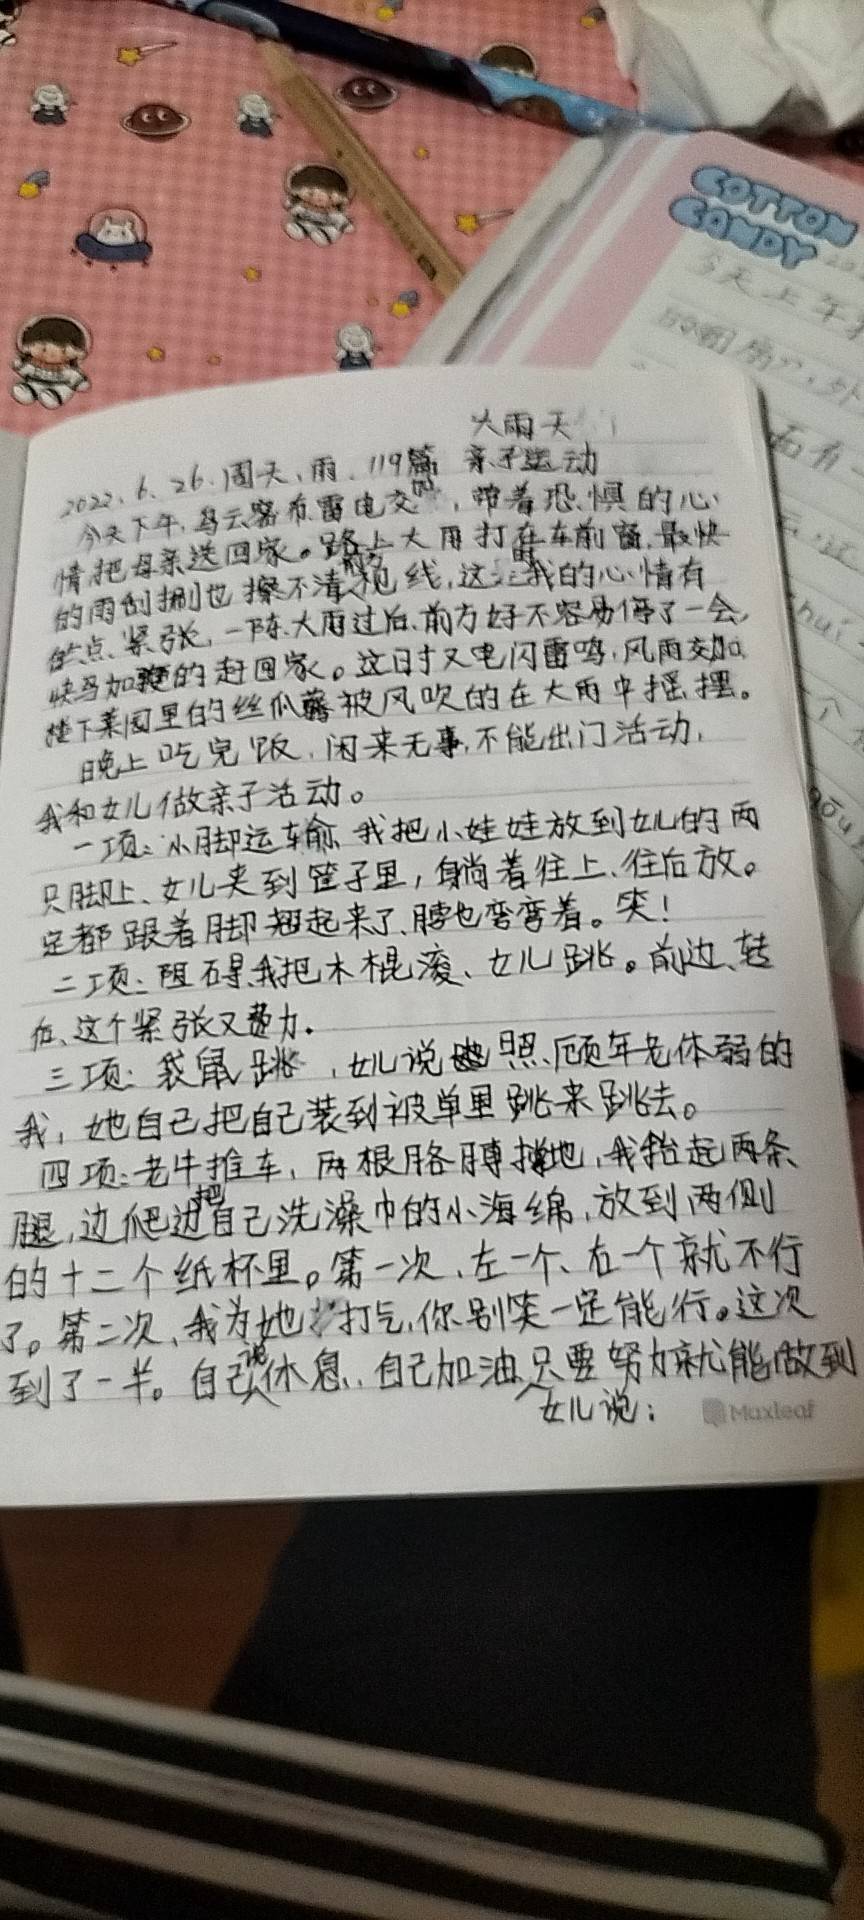 COTTON
CANDY
今天上午
外
大雨天
2022.6.26.周天、雨、119篇 亲子运动
今天下午,乌云密布雷电交加,带着恐惧的心
情把母亲送回家。路上大雨打在车前窗,最快
的雨刮捌也擦不清前方视线,这时我的心情有
点紧张,一阵大雨过后,前方好不容易停了一会,
快马加鞭的赶回家。这时又电闪雷鸣,风雨交加,
楼下菜园里的丝瓜藤被风吹的在大雨中摇摆。
晚上吃完饭,闲来无事,不能出门活动,
我和女儿做亲子活动。
一项:小脚运输,我把小娃娃放到女儿的两
只脚上、女儿夹到筐子里,躺着往上、往后放。
定都跟着脚翘起来了,膝也弯弯着。笑!
二项:阻碍,我把木棍滚、女儿跳。前边、转
后、这个紧张又费力.
三项:袋鼠跳,女儿说她照顾年老体弱的
我,她自己把自己装到被单里跳来跳去。
四项:老牛推车,两根胳膊撑地,我抬起两条
腿,边爬边把自己洗澡巾的小海绵,放到两侧
的十二个纸杯里。第一次,左一个、右一个就不行
了。第二次,我为她打气,你别笑一定能行。这次
到了一半。自己说休息,自己加油,只要努力就能做到
女儿说:
Maxleaf